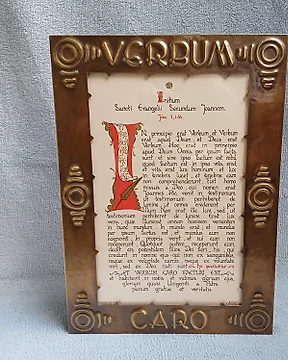 VERBUM
Initium
Sancti Evangelii Secundum Joannem.
Joan. 1, 1-14.
IN principio erat Verbum, et Verbum
erat apud Deum, et Deus erat
Verbum. Hoc erat in principio
apud Deum. Omnia per ipsum facta
sunt: et sine ipso factum est nihil,
quod factum est: in ipso vita erat,
et vita erat lux hominum: et lux
in tenebris lucet, et tenebrae eam
non comprehenderunt. Fuit homo
missus a Deo, cui nomen erat
Joannes. Hic venit in testimonium,
ut testimonium perhiberet de
lumine, ut omnes crederent per
illum. Non erat ille lux, sed ut
testimonium perhiberet de lumine. Erat lux
vera, quae illuminat omnem hominem venientem
in hunc mundum. In mundo erat, et mundus
per ipsum factus est, et mundus eum non
cognovit. In propria venit, et sui eum non
receperunt. Quotquot autem receperunt eum,
dedit eis potestatem filios Dei fieri, his, qui
credunt in nomine ejus: qui non ex sanguinibus,
neque ex voluntate carnis, neque ex voluntate
viri, sed ex Deo nati sunt.
ET VERBUM CARO FACTUM EST,
et habitavit in nobis: et vidimus gloriam ejus,
gloriam quasi Unigeniti a Patre,
plenum gratiae et veritatis.
CARO